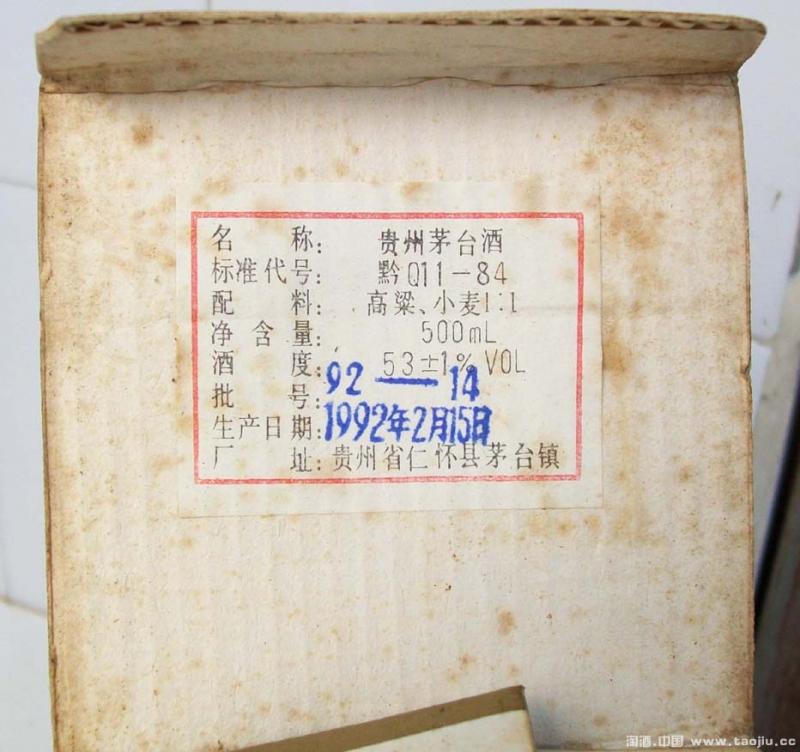 名称：贵州茅台酒
标准代号：黔Q11-84
配料：高粱、小麦1:1
净含量：500mL
酒度：53±1% VOL
批号：92—14
生产日期：1992年2月15日
厂址：贵州省仁怀县茅台镇
淘酒.中国 www.taojiu.cc